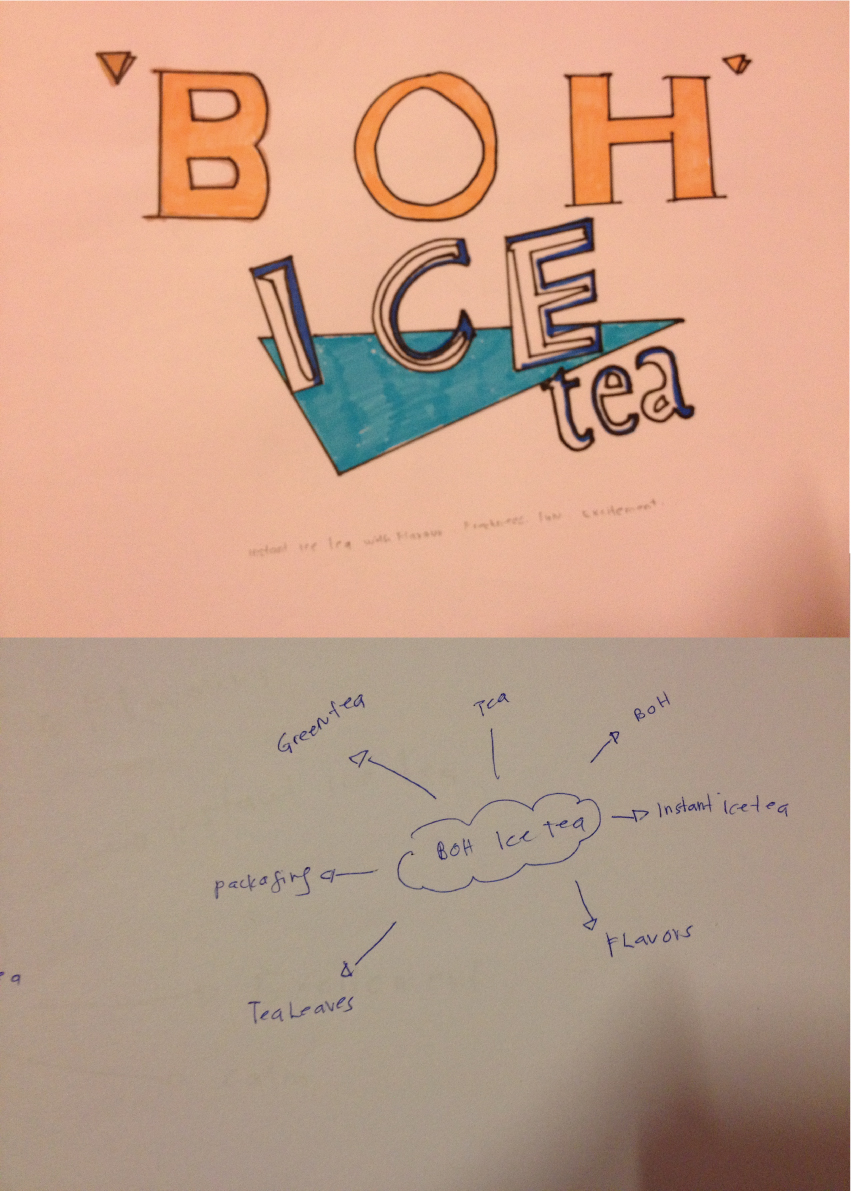 "BOH"
ICE
tea
Instant Ice Tea with Flavour. Freshness. Fun. Excitement.
Green tea
Tea
BOH
BOH Ice tea
Instant icetea
packaging
FLavors
Tea Leaves